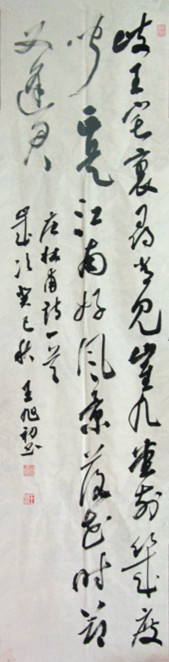 岐王宅裏尋常見崔九堂前幾度
聞正是江南好風景落花時節
又逢君
杜甫詩一首
歲次癸巳秋 王旭初書